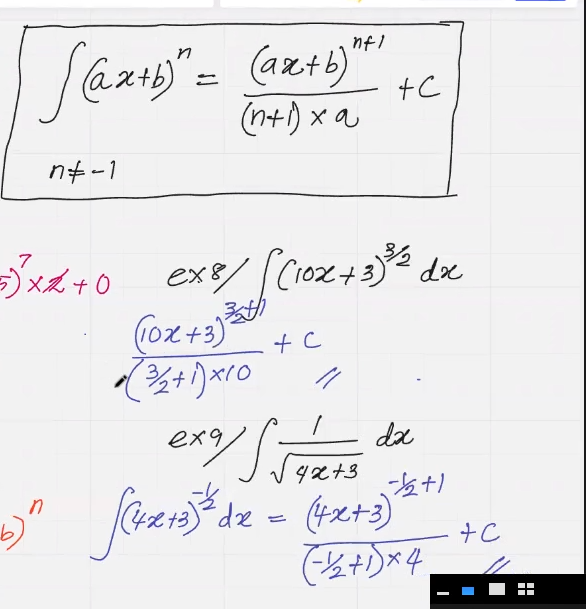 ∫(ax+b)^n = (ax+b)^(n+1) / ((n+1) × a) + C
n ≠ -1
5)^7 × 2 + 0
ex8/ ∫(10x+3)^(3/2) dx
(10x+3)^(3/2+1) / ((3/2+1)×10) + C //
ex9/ ∫ 1/√(4x+3) dx
b)^n
∫(4x+3)^(-1/2) dx = (4x+3)^(-1/2+1) / ((-1/2+1)×4) + C //